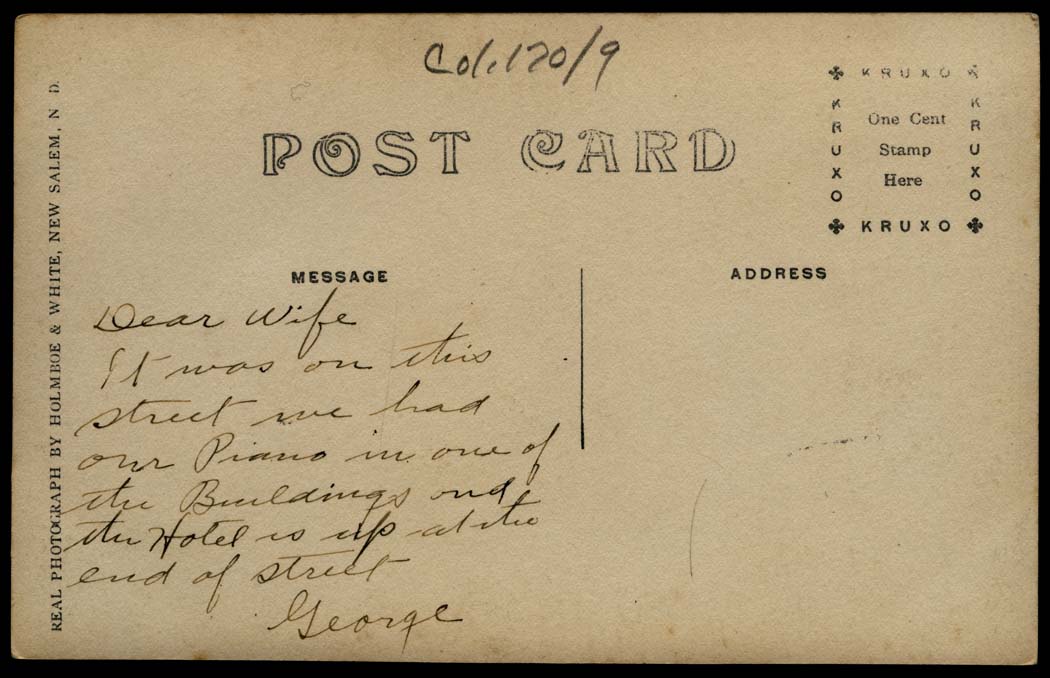 Col. 120/9
POST CARD
KRUXO
KRUXO
KRUXO
KRUXO
One Cent
Stamp
Here
MESSAGE
ADDRESS
Dear Wife
It was on this
street we had
our Piano in one of
the Buildings and
the Hotel is up at the
end of street
George
REAL PHOTOGRAPH BY HOLMBOE & WHITE, NEW SALEM, N. D.